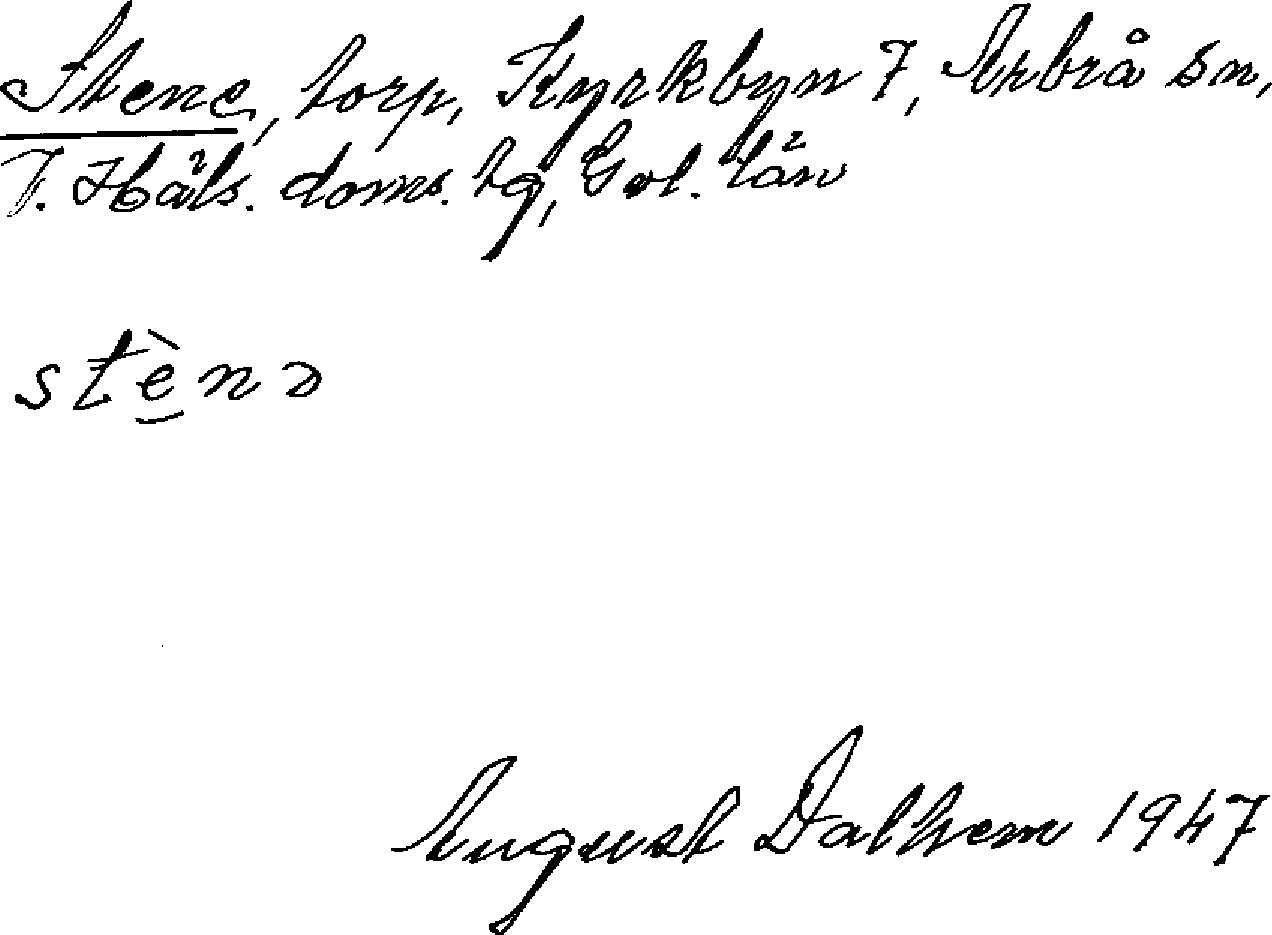 Stene, torp, Kyrkbyn 7, Arbrå sn,
V. Häls. doms. tg, Gvl. län
stènɔ
August Dalhem 1947